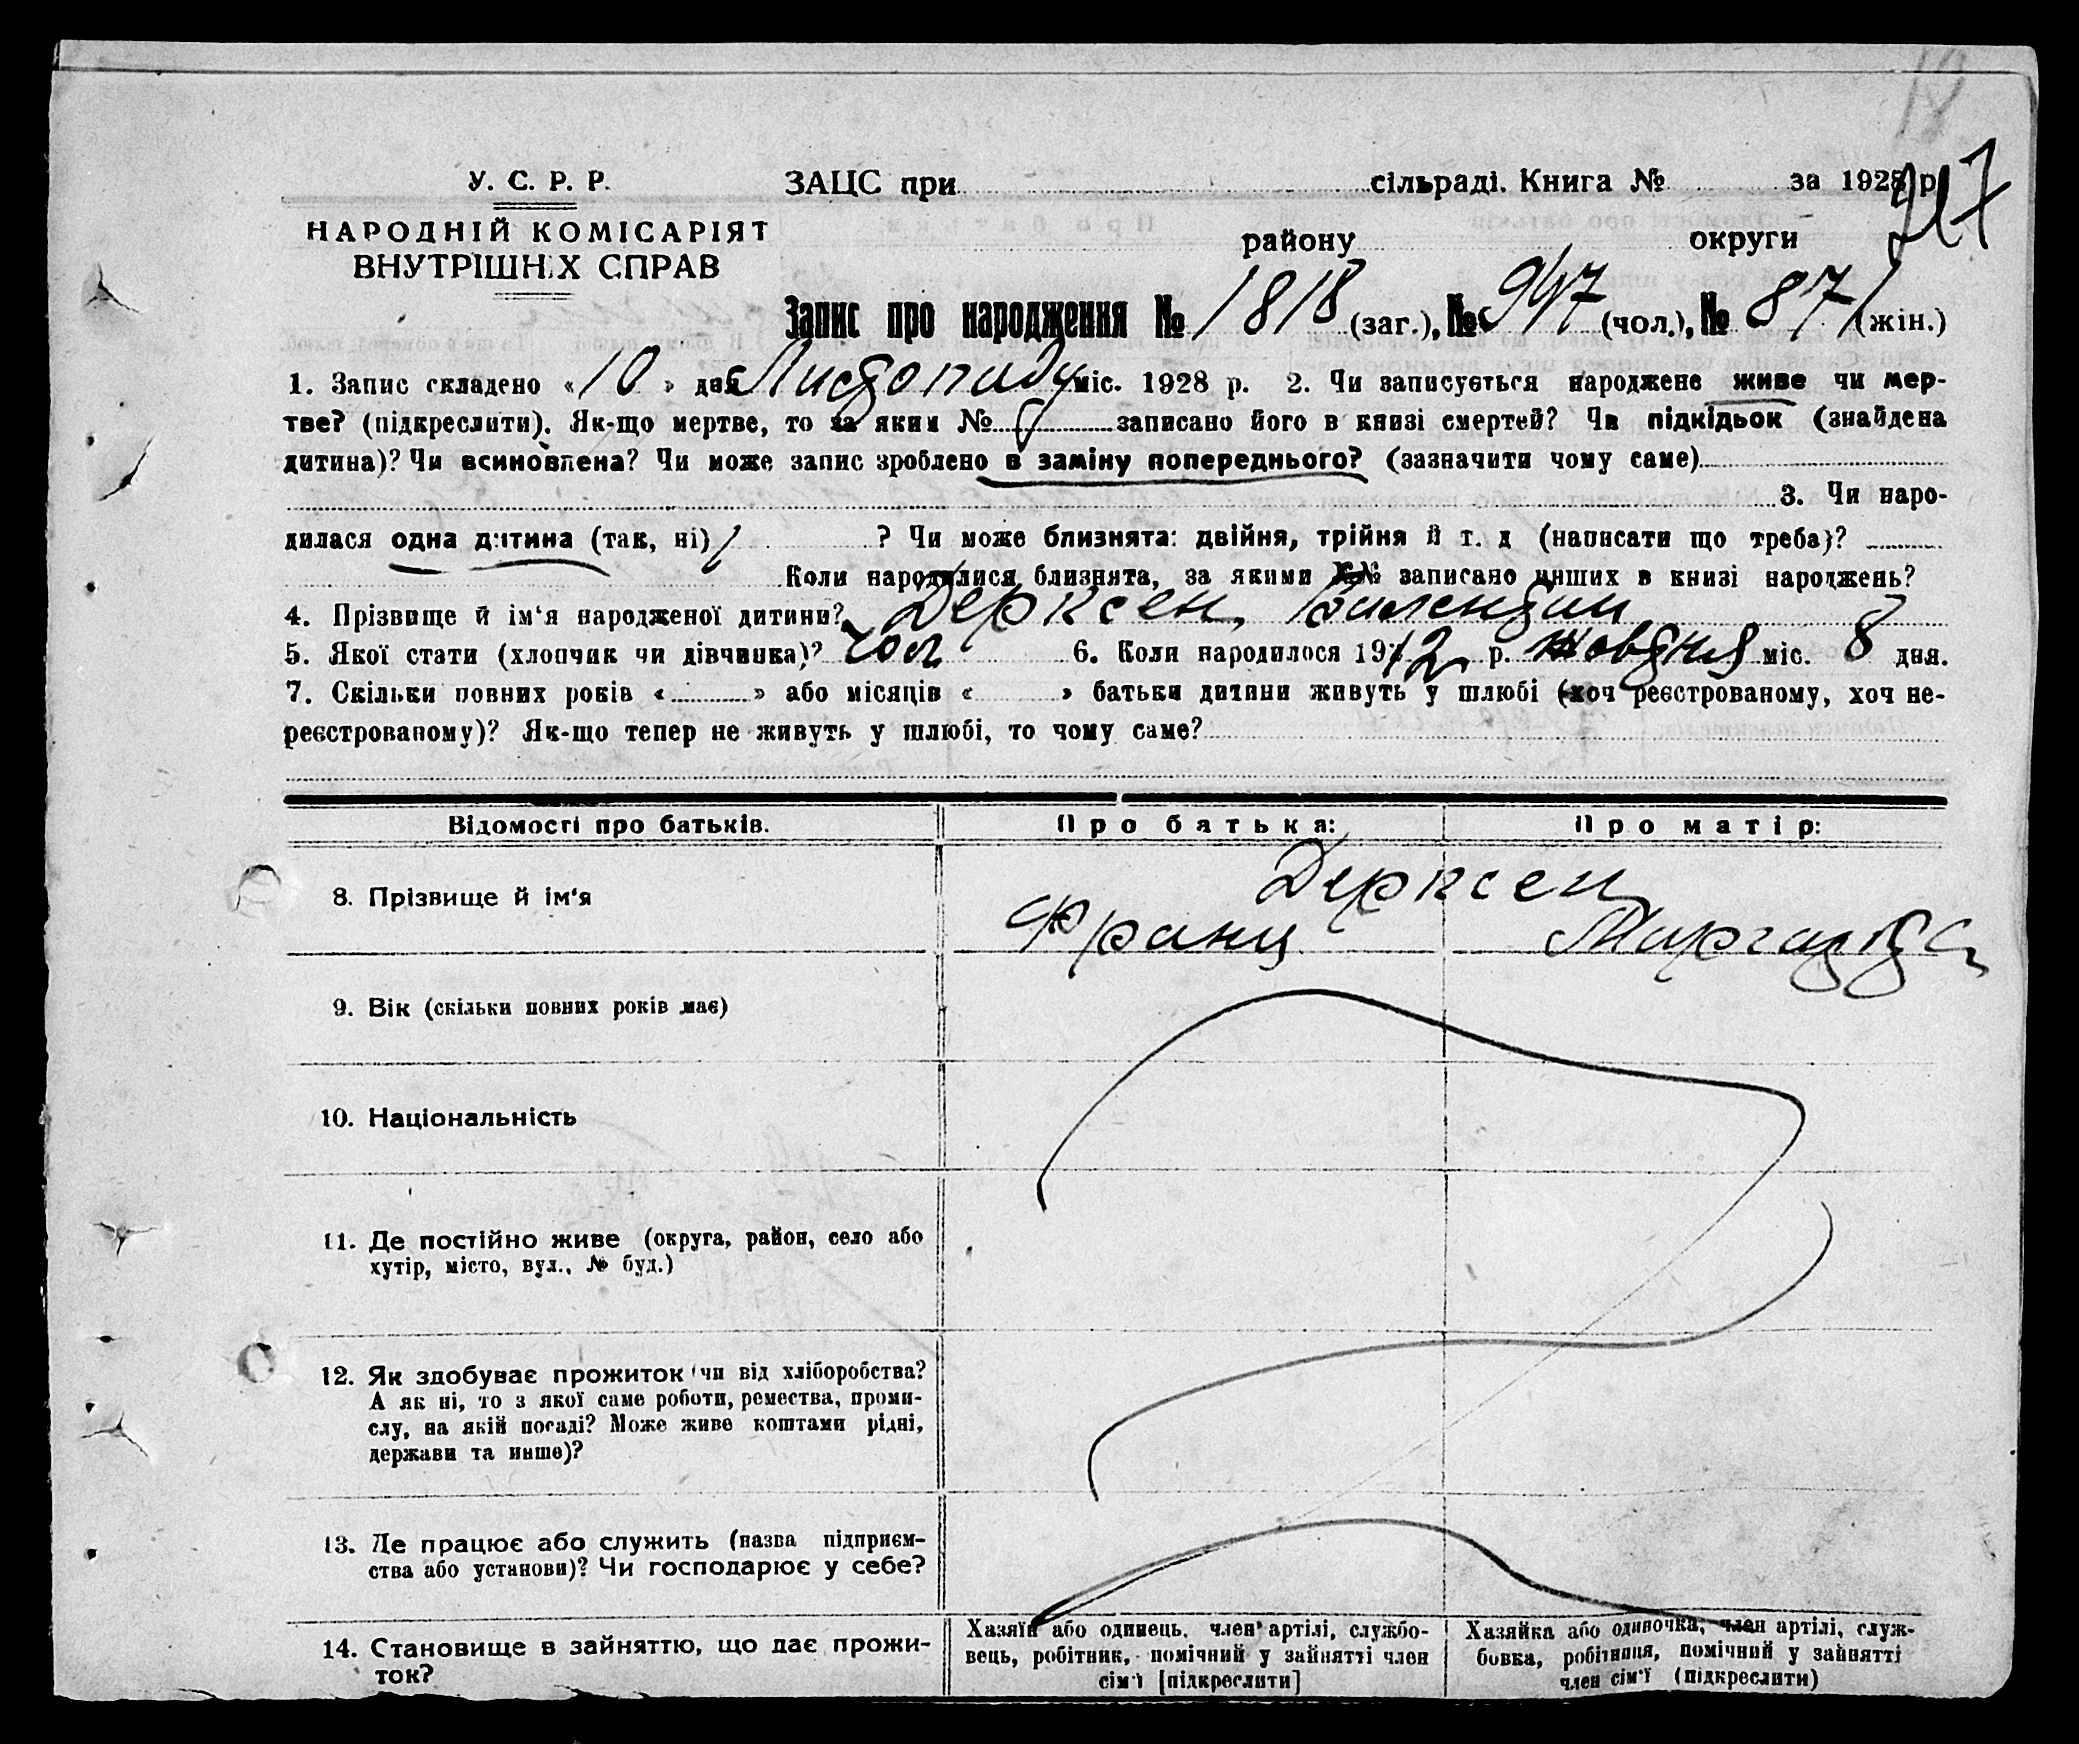 217
У. С. Р. Р. ЗАЦС при сільраді. Книга № за 1928 р.
НАРОДНІЙ КОМІСАРІЯТ
ВНУТРІШНІХ СПРАВ
району округи
Запис про народження № 1818 (заг.), № 947 (чол.), № 871 (жін.)
1. Запис складено «10» дня Листопаду міс. 1928 р. 2. Чи записується народжене живе чи мер-
тве? (підкреслити). Як-що мертве, то за яким № записано його в книзі смертей? Чи підкідьок (знайдена
дитина)? Чи всиновлена? Чи може запис зроблено в заміну попереднього? (зазначити чому саме)
3. Чи наро-
дилася одна дитина (так, ні) 1 ? Чи може близнята: двійня, трійня й т. д (написати що треба)?
Коли народилися близнята, за якими №№ записано инших в книзі народжень?
4. Прізвище й ім‘я народженої дитини? Дерксен, Валентин
5. Якої стати (хлопчик чи дівчинка)? чол 6. Коли народилося 1912 р. жовтня міс. 8 дня.
7. Скільки повних років « » або місяців « » батьки дитини живуть у шлюбі (хоч реєстрованому, хоч не-
реєстрованому)? Як-що тепер не живуть у шлюбі, то чому саме?
Відомості про батьків. Про батька: Про матір:
8. Прізвище й ім‘я Дерксен
Франц Маргарита
9. Вік (скільки повних років має)
10. Національність
11. Де постійно живе (округа, район, село або
хутір, місто, вул., № буд.)
12. Як здобуває прожиток (чи від хліборобства?
А як ні, то з якої саме роботи, ремества, проми-
слу, на якій посаді? Може живе коштами рідні,
держави та инше)?
13. Де працює або служить (назва підприєм-
ства або установи)? Чи господарює у себе?
14. Становище в зайняттю, що дає прожи-
ток?
Хазяїн або одинець, член артілі, службо-
вець, робітник, помічний у зайнятті член
сім'ї [підкреслити]
Хазяйка або одиночка, член артілі, служ-
бовка, робітниця, помічний у зайнятті
член сім'ї (підкреслити)